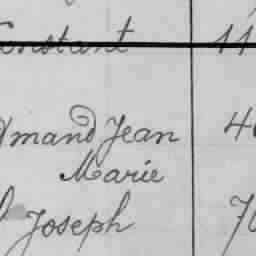 Constant 11
Amand Jean 4
Marie
Joseph 70